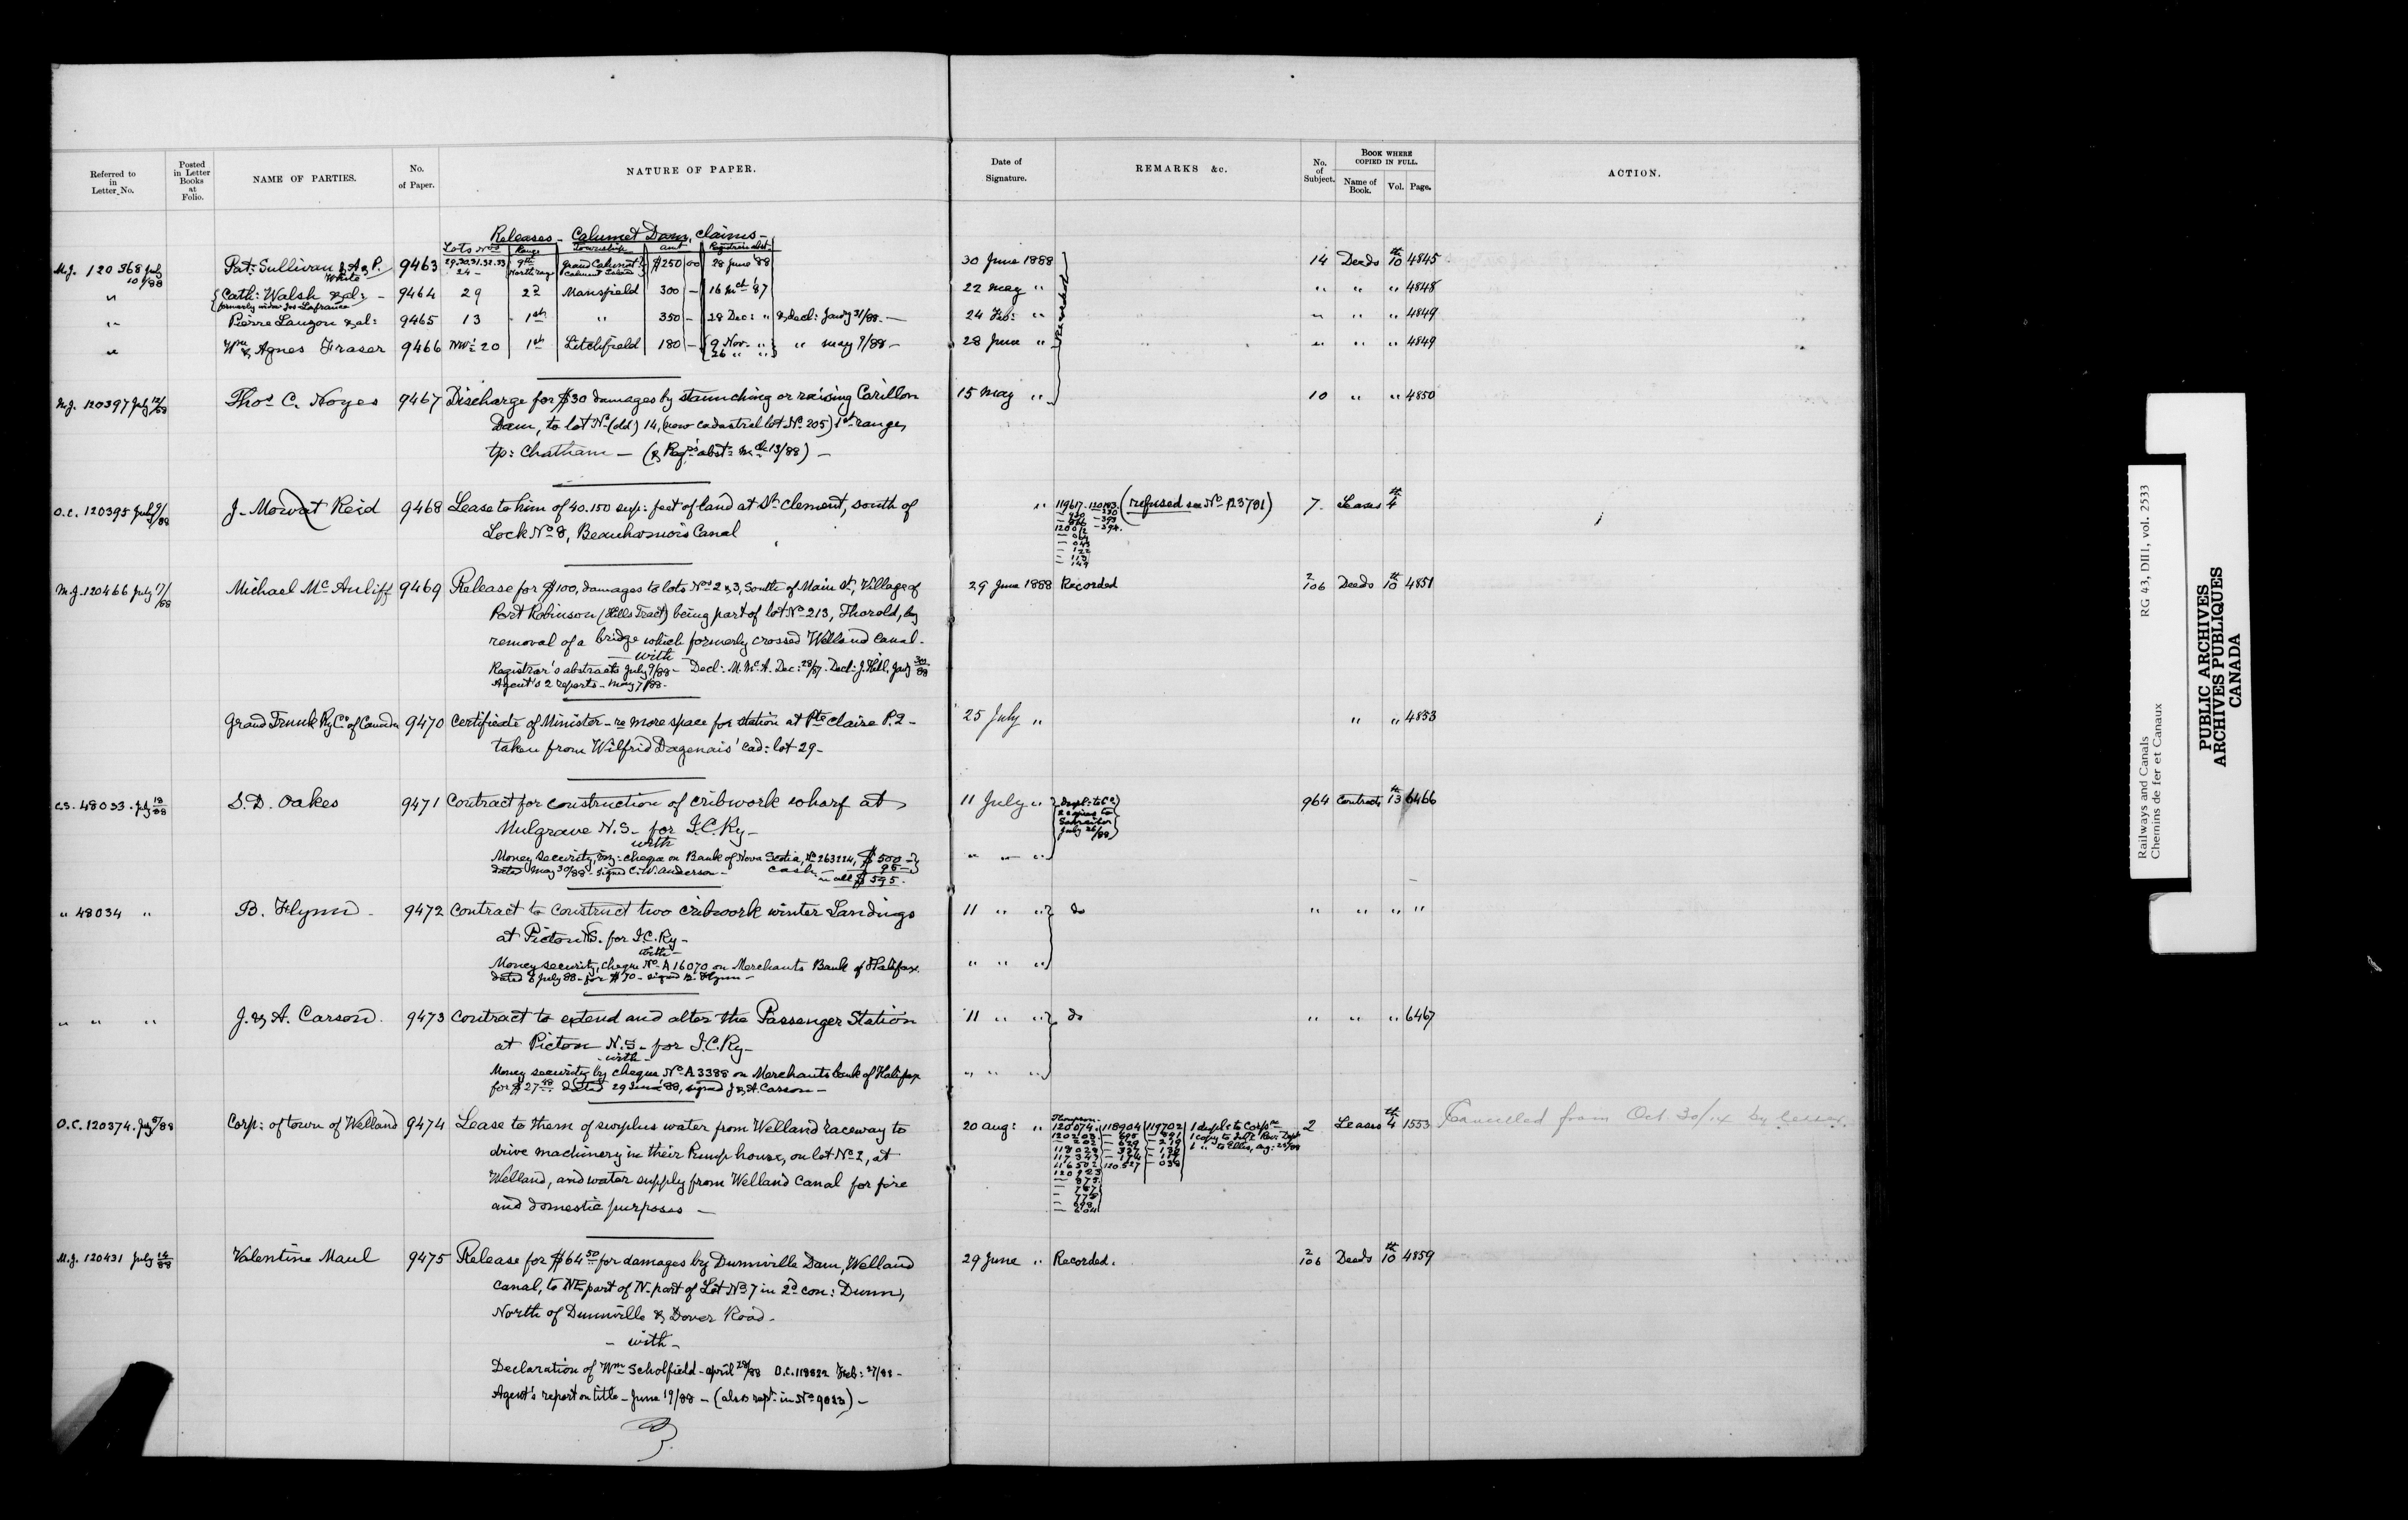 Referred to in Letter No.
Posted in Letter Books at Folio.
NAME OF PARTIES.
No. of Paper.
NATURE OF PAPER.
Date of Signature.
REMARKS &c.
No. of Subject.
BOOK WHERE COPIED IN FULL.
Name of Book.
Vol.
Page.
ACTION.
Releases - Calumet Dam, claims -
Lots Nos Range Township amt Registrar's abst
M.J. 120368 July 10/88 Pat: Sullivan & A. P. White 9463 29.30.31.32.33 9th Grand Calumet $250 00 28 June '88 30 June 1888 14 Deeds 10th 4845
24 - North rang Calumet Island
" Cath: Walsh & al: - 9464 29 2d Mansfield 300 - 16 Mch '87 22 May " " " " 4848
formerly widow Jos Lafrance
" Pierre Lauzon & al: 9465 13 1st " 350 - 28 Dec: " & Decl: Jany 31/88 - 24 Feb: " " " " 4849
" Wm & Agnes Fraser 9466 NW½ 20 1st Litchfield 180 - 9 Nov. " " May 9/88 - 28 June " " " " 4849
26 " "
Recorded
M.J. 120397 July 12/88 Thos C. Noyes 9467 Discharge for $30 damages by staunching or raising Carillon 15 May " 10 " " 4850
Dam, to lot No (old) 14, (now cadastral lot No 205) 1st range,
tp: Chatham - (& Regrs abst: Mch 13/88) -
O.C. 120395 July 9/88 J. Mowat Reid 9468 Lease to him of 40.150 sup: feet of land at St Clement, south of " (refused see No 123781) 7. Leases 4th
Lock No 8, Beauharnois Canal
M.J. 120466 July 17/88 Michael McAuliff 9469 Release for $100, damages to lots Nos 2 & 3, South of Main St, Village of 29 June 1888 Recorded 2 106 Deeds 10th 4851
Port Robinson (Hells Tract) being part of lot No 213, Thorold, by
removal of a bridge which formerly crossed Welland Canal.
- with -
Registrar's abstracts July 9/88 - Decl: M. McA. Dec: 28/87. Decl: J. Hill, Jany 30/88
Agent's 2 reports - May 7/88 -
Grand Trunk Ry Co of Canada 9470 Certificate of Minister - re more space for station at Pte Claire P.Q - 25 July " " " 4853
taken from Wilfrid Dagenais' Cad: lot 29 -
C.S. 48033. July 18/88 S.D. Oakes 9471 Contract for construction of cribwork wharf at 11 July " 964 Contracts 13th 6466
Dupl: to Co
2 copies to
July 26/88
Mulgrave N.S. - for I.C.Ry -
with
Money security, viz: cheque on Bank of Nova Scotia, No 263224, $500 -
dated May 30/88 - signed C.W. Anderson - cash 95 -
in all $595.
" 48034 " B. Flynn - 9472 Contract to construct two cribwork winter Landings 11 " " do " " " "
at Pictou N.S. for I.C.Ry -
with -
Money security, cheque No A 16070 on Merchants Bank of Halifax " " "
dated 6 July 88 - for $70 - signed B. Flynn -
" " " J. & A. Carson. 9473 Contract to extend and alter the Passenger Station 11 " " do " " " 6467
at Pictou N.S - for I.C.Ry -
- with -
Money security by cheque No A 3388 on Merchants bank of Halifax " " "
for $27 dated 29 June 88, signed J & A. Carson -
O.C. 120374. July 5/88 Corp: of town of Welland 9474 Lease to them of surplus water from Welland raceway to 20 Aug: " 2 Leases 4th 1553 Cancelled from Oct 30/14 by lessor.
1 duple to Corpn
1 copy to Inld Rev: Dept
1 " to Ellis, Aug: 25/88
drive machinery in their Pump house, on lot No 2, at
Welland, and water supply from Welland Canal for fire
and domestic purposes -
M.J. 120431 July 14/88 Valentine Maul 9475 Release for $64 50 for damages by Dunnville Dam, Welland 29 June " Recorded. 2 106 Deeds 10th 4859
Canal, to NE part of N. part of Lot No 7 in 2d con: Dunn,
North of Dunnville & Dover Road -
- with -
Declaration of Wm Scholfield - April 28/88 O.C. 118822 Feb: 27/88 -
Agent's report on title - June 19/88 - (also rept: in No 9023) -
Railways and Canals RG 43, DIII, vol. 2533
Chemins de fer et Canaux
PUBLIC ARCHIVES
ARCHIVES PUBLIQUES
CANADA